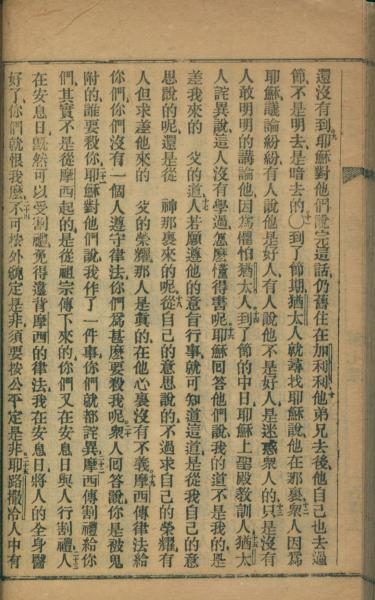 還沒有到耶穌對他們說完這話仍舊住在加利利他弟兄去後他自己也去過
節不是明去是暗去的〇到了節期猶太人就尋找耶穌說他在那裏衆人因爲
耶穌議論紛紛有人說他是好人有人說他不是好人是迷惑衆人的只是沒有
人敢明明的講論他因爲懼怕猶太人到了節的中日耶穌上聖殿敎訓人猶太
人詫異說這人沒有學過怎麼懂得書呢耶穌回答他們說我的道不是我的是
差我來的 父的道人若願遵他的意旨行事就可知道這道是從我自己的意
思說的呢還是從 神那裏來的呢從自己的意思說的不過求自己的榮耀有
人但求差他來的 父的榮耀那人是眞的在他心裏沒有不義摩西傳律法給
你們你們沒有一個人遵守律法你們爲甚麼要殺我呢衆人回答說你是被鬼
附的誰要殺你耶穌對他們說我作了一件事你們就都詫異摩西傳割禮給你
們其實不是從摩西起的是從祖宗傳下來的你們又在安息日與人行割禮人
在安息日旣然可以受割禮免得違背摩西的律法我在安息日將人的全身醫
好了你們就恨我麼不可按外貌定是非須要按公平定是非耶路撒冷人中有